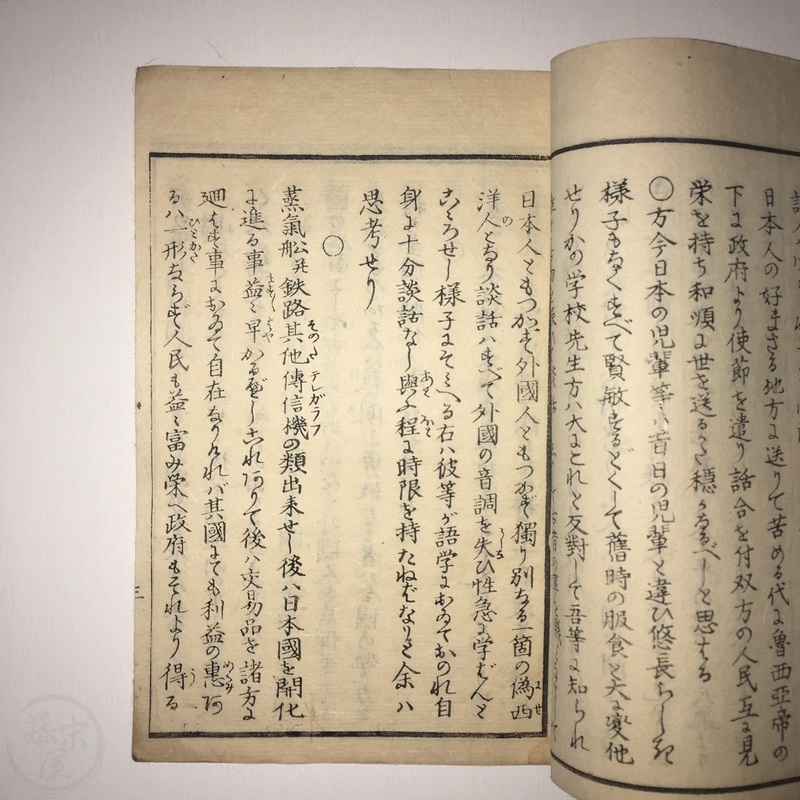 日本人の好まさる地方に送りて苦める代に魯西亜帝の
下に政府より使節を遣り話合を付双方の人民互に見
栄を持ち和順に世を送る
穏かなるべしと思はる
〇方今日本の児輩等ハ昔日の児輩と違ひ悠長らしき
様子もなくすべて賢敏
して舊時の服食と大に変他
せりかの学校先生方ハ大にこれと反對して吾等に知られ
日本人ともつかず外國人ともつかず獨り別なる一箇の偽西
洋人となり談話ハすべて外國の音調を失ひ性急に学ばんと
こゝろせし様子にそみへる右ハ彼等が語学においておのれ自
身に十分談話なし與ふ程に時限を持たねばなり余ハ
思考せり
〇
蒸氣舩并鉄路其他傳信機の類出来せし後ハ日本國を開化
に進る事益々早かるべしこれありて後ハ交易品を諸方に
廻はす事において自在なりければ其國にても利益の惠あ
るハ一形ならず人民も益々富み栄へ政府もそれより得る
三